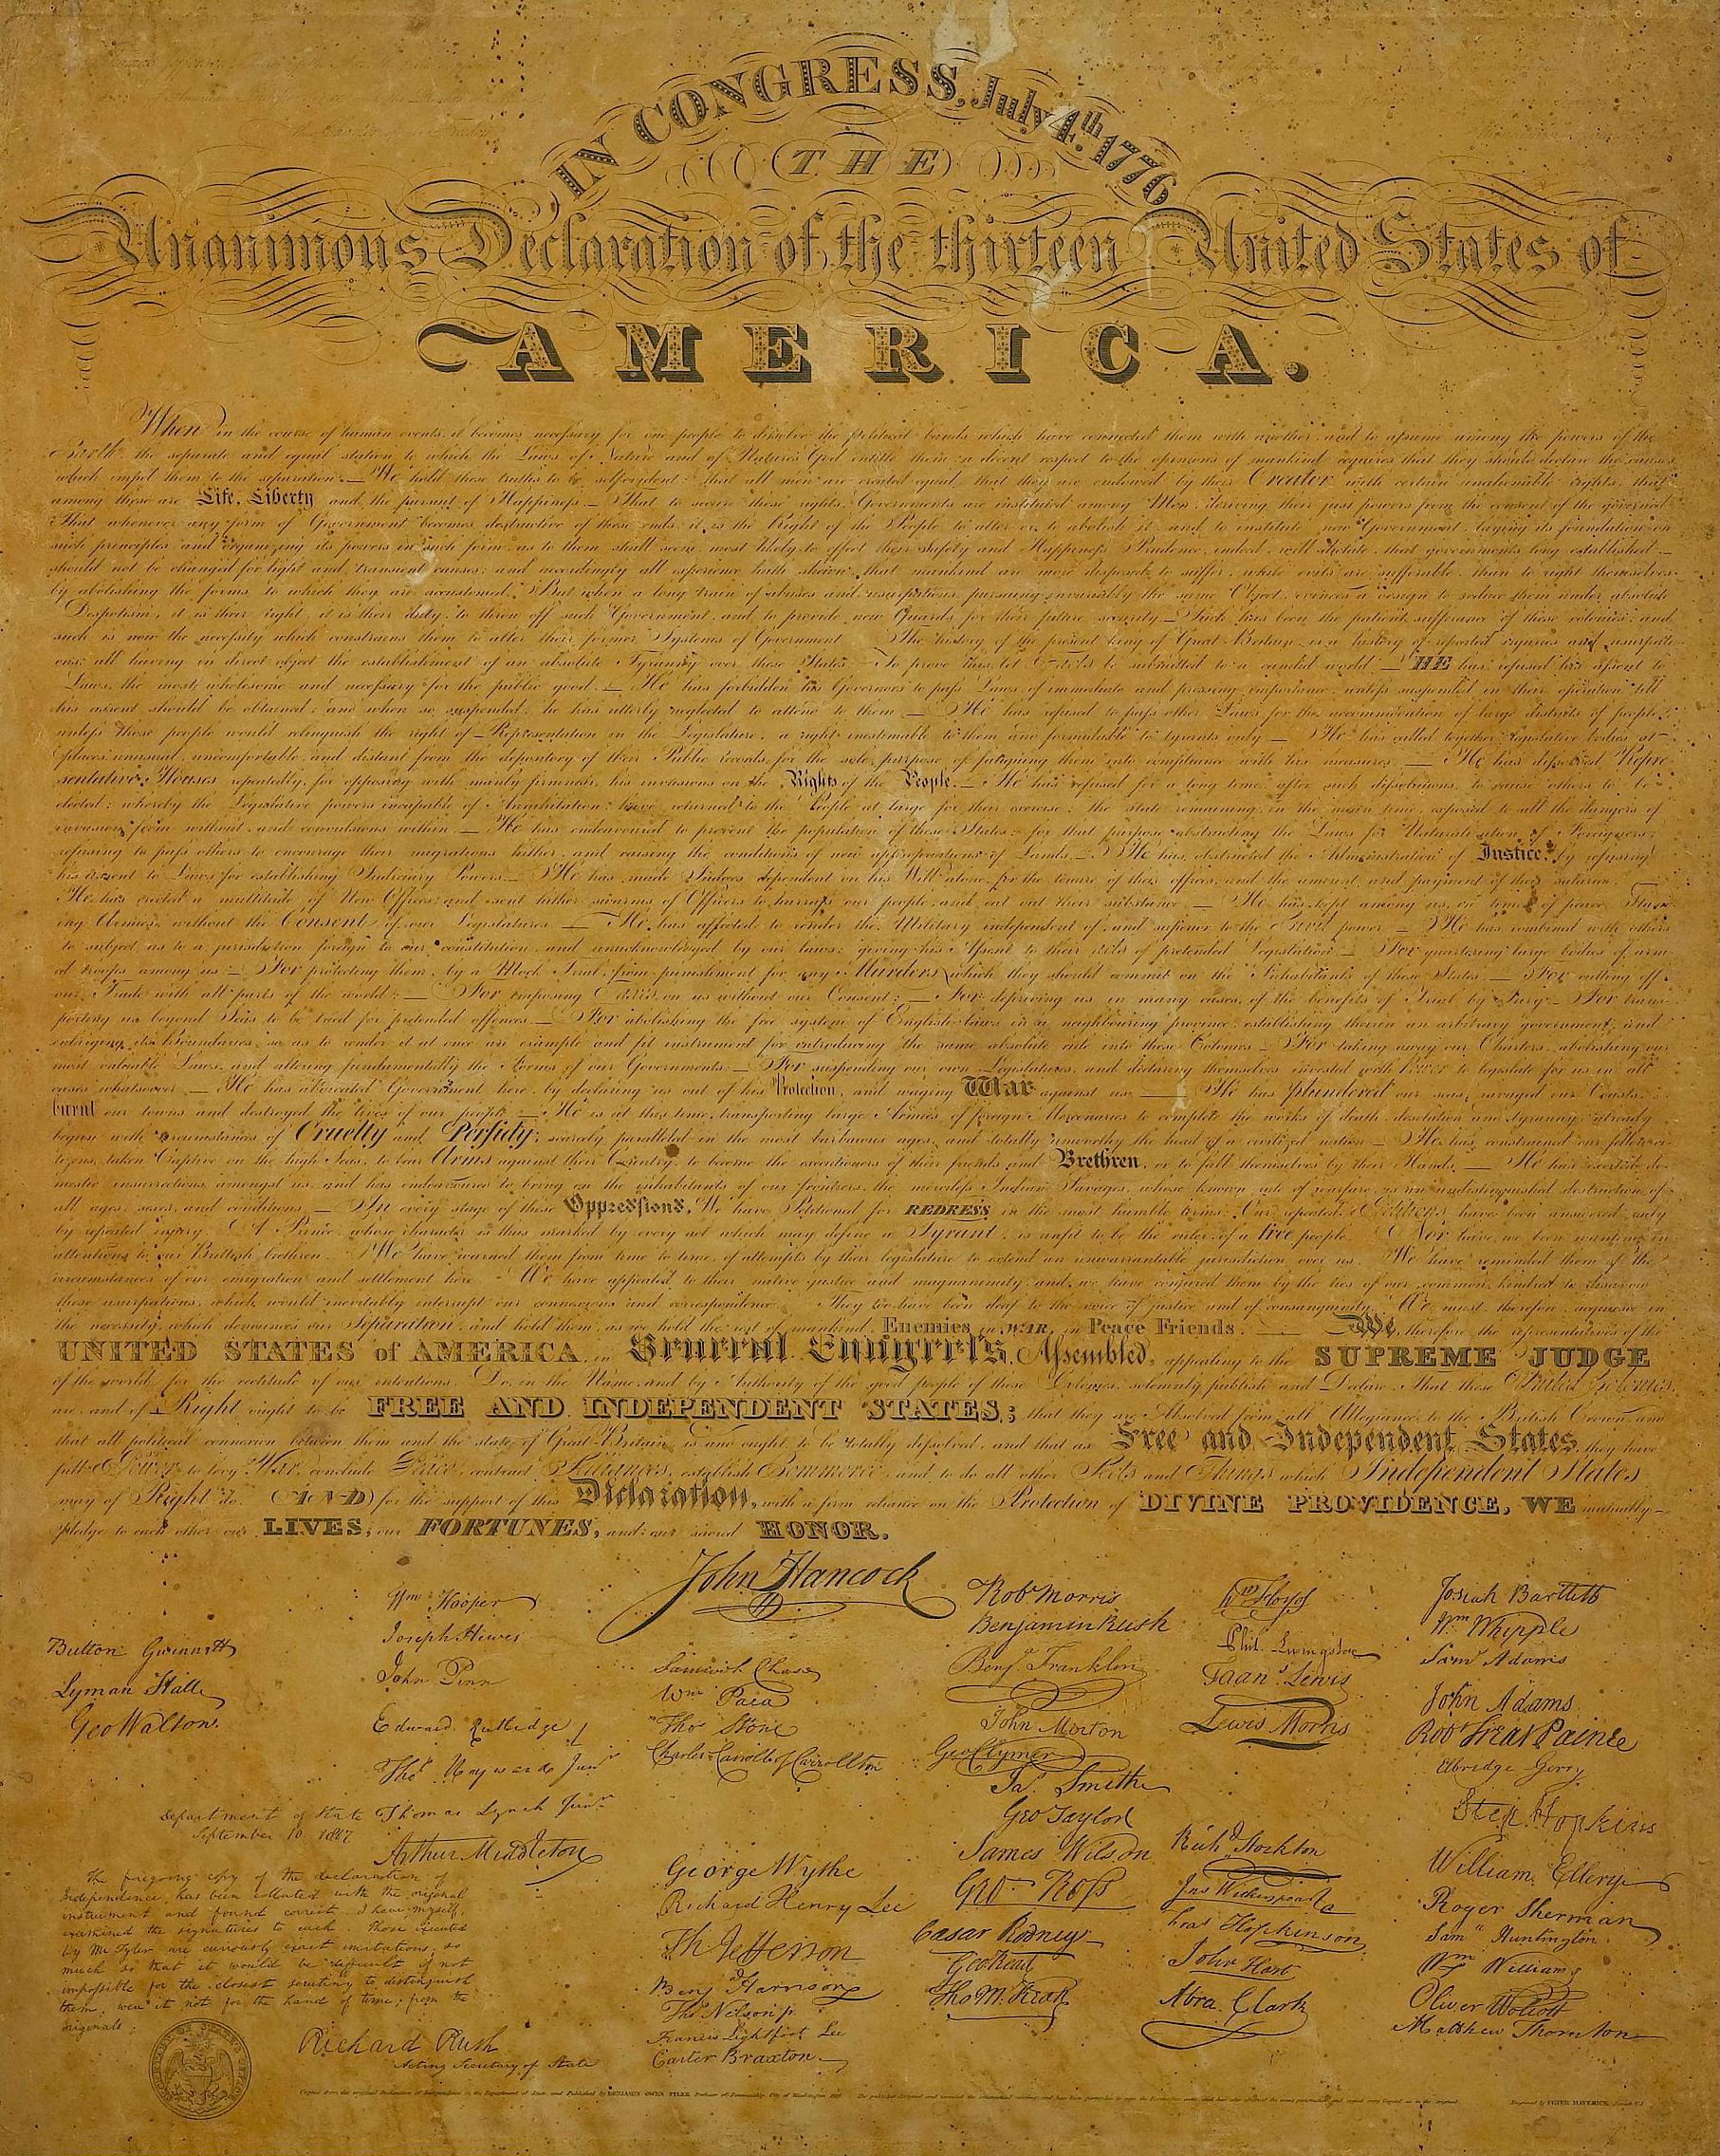 IN CONGRESS, July 4th. 1776.
THE
Unanimous Declaration of the thirteen United States of
AMERICA.
When in the course of human events, it becomes necessary for one people to dissolve the political bands which have connected them with another, and to assume among the powers of the
Earth, the separate and equal station to which the Laws of Nature and of Nature's God entitle them, a decent respect to the opinions of mankind requires that they should declare the causes
which impel them to the separation. — We hold these truths to be self-evident; that all men are created equal, that they are endowed by their Creator with certain unalienable rights; that
among these are Life, Liberty and the pursuit of Happiness. — That to secure these rights, Governments are instituted among Men, deriving their just powers from the consent of the governed
That whenever any form of Government becomes destructive of these ends, it is the Right of the People to alter or to abolish it, and to institute new Government, laying its foundation on
such principles, and organizing its powers in such form, as to them shall seem most likely to effect their safety and Happiness. Prudence, indeed, will dictate, that governments long established —
should not be changed for light and transient causes; and accordingly all experience hath shewn, that mankind are more disposed to suffer, while evils are sufferable, than to right themselves
by abolishing the forms to which they are accustomed. But when a long train of abuses and usurpations, pursuing invariably the same Object, evinces a design to reduce them under absolute
Despotism, it is their right, it is their duty, to throw off such Government, and to provide new Guards for their future security. — Such has been the patient sufferance of these colonies; and
such is now the necessity which constrains them to alter their former Systems of Government. The history of the present king of Great-Britain, is a history of repeated injuries and usurpati-
ons; all having in direct object the establishment of an absolute Tyranny over these States. To prove this, let Facts be submitted to a candid world — HE has refused his assent to
Laws, the most wholesome and necessary for the public good. — He has forbidden his Governors to pass Laws of immediate and pressing importance, unless suspended in their operation till
his assent should be obtained; and when so suspended, he has utterly neglected to attend to them — He has refused to pass other Laws for the accommodation of large districts of people;
unless those people would relinquish the right of Representation in the Legislature, a right inestimable to them and formidable to tyrants only — He has called together legislative bodies at
places unusual, uncomfortable, and distant from the depository of their Public records, for the sole purpose of fatiguing them into compliance with his measures. — He has dissolved Repre-
sentative Houses repeatedly, for opposing with manly firmness, his invasions on the Rights of the People. — He has refused for a long time, after such dissolutions, to cause others to be
elected; whereby the Legislative powers incapable of Annihilation, have returned to the People at large for their exercise; the state remaining, in the mean time, exposed to all the dangers of
invasion from without, and convulsions within — He has endeavoured to prevent the population of these States; for that purpose obstructing the Laws for Naturalization of Foreigners;
refusing to pass others to encourage their migrations hither, and raising the conditions of new appropriations of Lands. — He has obstructed the Administration of Justice, by refusing
his assent to Laws for establishing Judiciary Powers. — He has made Judges dependent on his Will alone, for the tenure of their offices, and the amount and payment of their salaries.
He has erected a multitude of New Offices, and sent hither swarms of Officers to harrass our people, and eat out their substance — He has kept among us, in times of peace, Stand-
ing Armies, without the Consent of our Legislatures. — He has affected to render the Military independent of, and superior to the Civil power — He has combined with others
to subject us to a jurisdiction foreign to our constitution, and unacknowledged by our laws; giving his Assent to their acts of pretended Legislation: — For quartering large bodies of arm-
ed troops among us: — For protecting them, by a Mock Trial, from punishment for any Murders which they should commit on the Inhabitants of these States — For cutting off
our Trade with all parts of the world: — For imposing Taxes on us without our Consent; — For depriving us, in many cases, of the benefits of Trial by Jury — For trans-
porting us beyond Seas to be tried for pretended offences. — For abolishing the free system of English laws in a neighbouring province, establishing therein an arbitrary government, and
enlarging its boundaries, so as to render it at once an example and fit instrument for introducing the same absolute rule into these Colonies — For taking away our Charters, abolishing our
most valuable Laws, and altering fundamentally the Forms of our Governments: — For suspending our own Legislatures, and declaring themselves invested with Power to legislate for us in all
cases whatsoever — He has abdicated Government here, by declaring us out of his Protection, and waging War against us. — He has plundered our seas, ravaged our Coasts,
burnt our towns and destroyed the lives of our people — He is at this time, transporting large Armies of foreign Mercenaries to complete the works of death, desolation and tyranny, already
begun with circumstances of Cruelty and Perfidy, scarcely paralleled in the most barbarous ages, and totally unworthy the head of a civilized nation — He has constrained our fellow ci-
tizens, taken Captive on the high Seas, to bear Arms against their Country, to become the executioners of their friends and Brethren, or to fall themselves by their Hands. — He has excited do-
mestic insurrections amongst us, and has endeavoured to bring on the inhabitants of our frontiers, the merciless Indian Savages, whose known rule of warfare, is an undistinguished destruction of
all ages, sexes, and conditions — In every stage of these Oppressions, We have Petitioned for REDRESS in the most humble terms: Our repeated Petitions have been answered only
by repeated injury. A Prince whose character is thus marked by every act which may define a Tyrant, is unfit to be the ruler of a free people. Nor have we been wanting in
attentions to our British brethren. We have warned them from time to time, of attempts by their legislature to extend an unwarrantable jurisdiction over us. We have reminded them of the
circumstances of our emigration and settlement here — We have appealed to their native justice and magnanimity, and we have conjured them by the ties of our common kindred to disavow
these usurpations, which, would inevitably interrupt our connexions and correspondence. They too have been deaf to the voice of justice and of consanguinity. We must, therefore, acquiesce in
the necessity, which denounces our Separation, and hold them, as we hold the rest of mankind, Enemies in WAR, in Peace Friends. — We, therefore, the representatives of the
UNITED STATES of AMERICA, in General Congress, Assembled, appealing to the SUPREME JUDGE
of the world, for the rectitude of our intentions, Do, in the Name, and by Authority of the good people of these Colonies, solemnly publish and Declare, That these United Colonies
are, and of Right ought to be FREE AND INDEPENDENT STATES; that they are Absolved from all Allegiance to the British Crown, and
that all political connexion between them and the state of Great-Britain, is and ought to be totally dissolved, and that as Free and Independent States, they have
full Power to levy War, conclude Peace, contract Alliances, establish Commerce, and to do all other Acts and Things which Independent States
may of Right do. AND for the support of this Declaration, with a firm reliance on the Protection of DIVINE PROVIDENCE, WE mutually
pledge to each other our LIVES, our FORTUNES, and our sacred HONOR.
John Hancock
Button Gwinnett
Lyman Hall
Geo Walton.
Wm Hooper
Joseph Hewes
John Penn
Edward Rutledge /
Thos Heyward Junr
Thomas Lynch Junr
Arthur Middleton
Samuel Chase
Wm Paca
Thos Stone
Charles Carroll of Carrollton
George Wythe
Richard Henry Lee
Th Jefferson
Benj Harrison
Thos Nelson jr
Francis Lightfoot Lee
Carter Braxton
Robt Morris
Benjamin Rush
Benj. Franklin
John Morton
Geo Clymer
Jas Smith
Geo Taylor
James Wilson
Geo. Ross
Caesar Rodney
Geo Read
Tho M:Kean
Wm Floyd
Phil. Livingston
Frans Lewis
Lewis Morris
Richd Stockton
Jno Witherspoon
Fras Hopkinson
John Hart
Abra Clark
Josiah Bartlett
Wm Whipple
Saml Adams
John Adams
Robt Treat Paine
Elbridge Gerry
Step. Hopkins
William Ellery
Roger Sherman
Saml Huntington
Wm Williams
Oliver Wolcott
Matthew Thornton
Department of State
September 10. 1817.
The foregoing copy of the declaration of
Independence, has been collated with the original
instrument and found correct. I have myself,
examined the signatures to each. Those executed
by Mr Tyler are curiously exact imitations; so
much so that it would be difficult, if not
impossible for the closest scrutiny to distinguish
them, were it not for the hand of time; from the
originals:
Richard Rush
Acting Secretary of State
Copied from the original Declaration of Independence in the Department of State and Published by BENJAMIN OWEN TYLER Professor of Penmanship City of Washington
Engraved by PETER MAVERICK